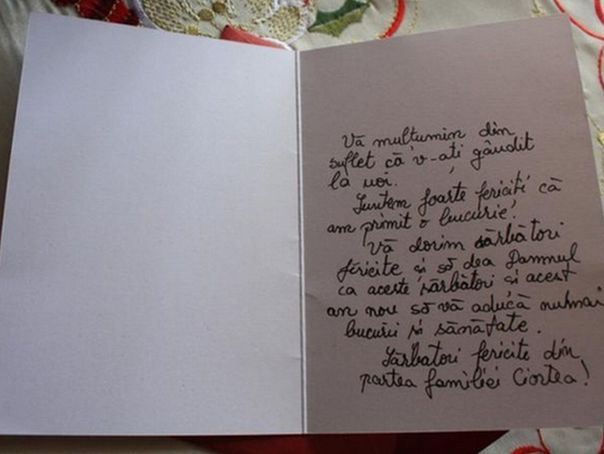 Vă multumim din
suflet că v-ați gândit
la noi.
Suntem foarte fericiți că
am primit o bucurie!
Vă dorim sărbători
fericite și să dea Domnul
ca aceste sărbători și acest
an nou să vă aducă numai
bucurii și sănătate.
Sărbatori fericite din
partea familiei Ciortea!